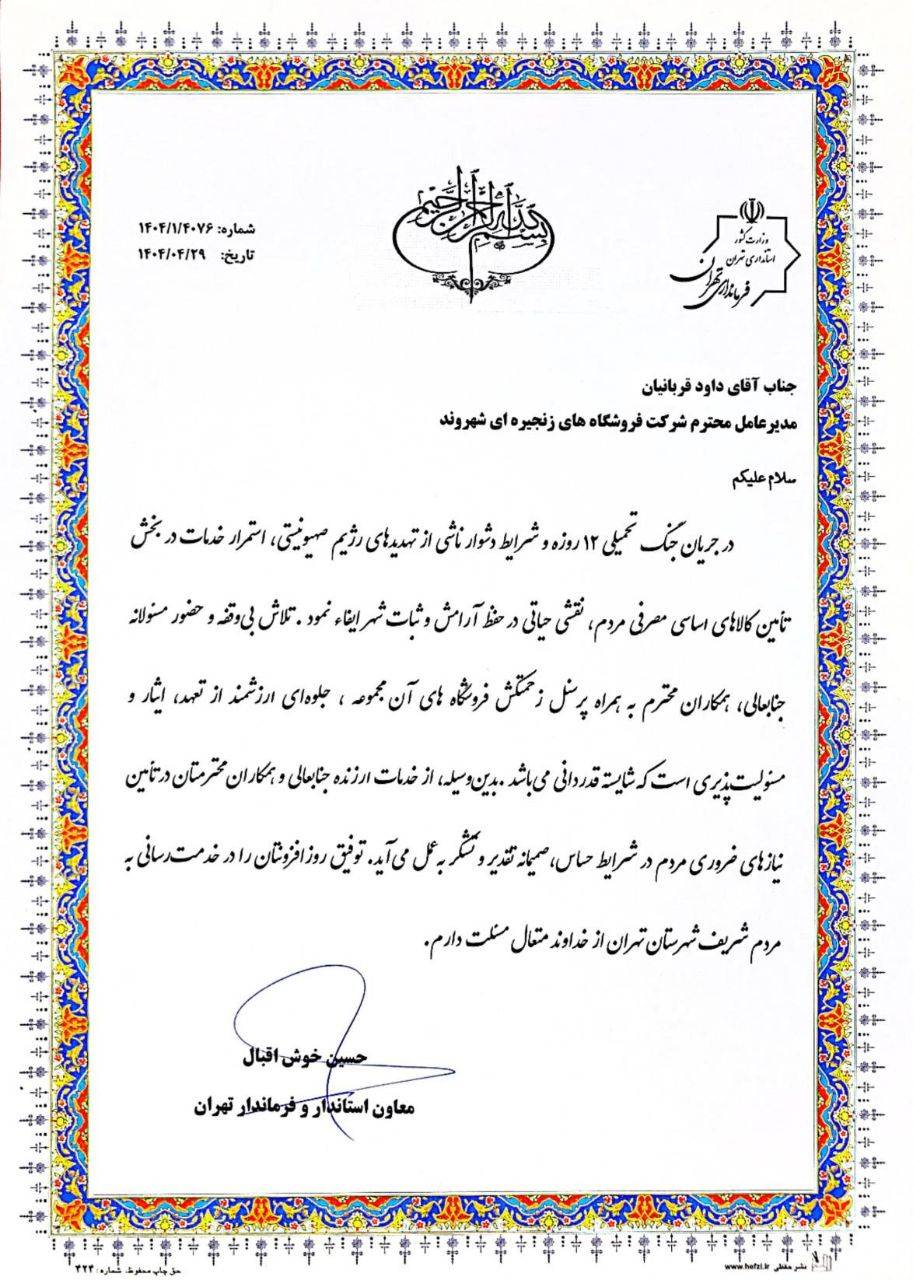 بسم الله الرحمن الرحیم
وزارت کشور
استانداری تهران
فرمانداری تهران
شماره: ۱۴۰۴/۱/۴۰۷۶
تاریخ: ۱۴۰۴/۰۴/۲۹
جناب آقای داود قربانیان
مدیرعامل محترم شرکت فروشگاه های زنجیره ای شهروند
سلام علیکم
در جریان جنگ تحمیلی ۱۲ روزه و شرایط دشوار ناشی از تهدیدهای رژیم صهیونیستی، استمرار خدمات در بخش
تأمین کالاهای اساسی مصرفی مردم، نقشی حیاتی در حفظ آرامش و ثبات شهر ایفاء نمود. تلاش بی‌وقفه و حضور مسئولانه
جنابعالی، همکاران محترم به همراه پرسنل زحمتکش فروشگاه های آن مجموعه، جلوه‌ای ارزشمند از تعهد، ایثار و
مسئولیت‌پذیری است که شایسته قدردانی می‌باشد. بدین‌وسیله، از خدمات ارزنده جنابعالی و همکاران محترمتان در تأمین
نیازهای ضروری مردم در شرایط حساس، صمیمانه تقدیر و تشکر به عمل می‌آید. توفیق روزافزونتان را در خدمت‌رسانی به
مردم شریف شهرستان تهران از خداوند متعال مسئلت دارم.
حسین خوش اقبال
معاون استاندار و فرماندار تهران
نشر حفظی www.hefzi.ir
حق چاپ محفوظ. شماره: ۴۲۴